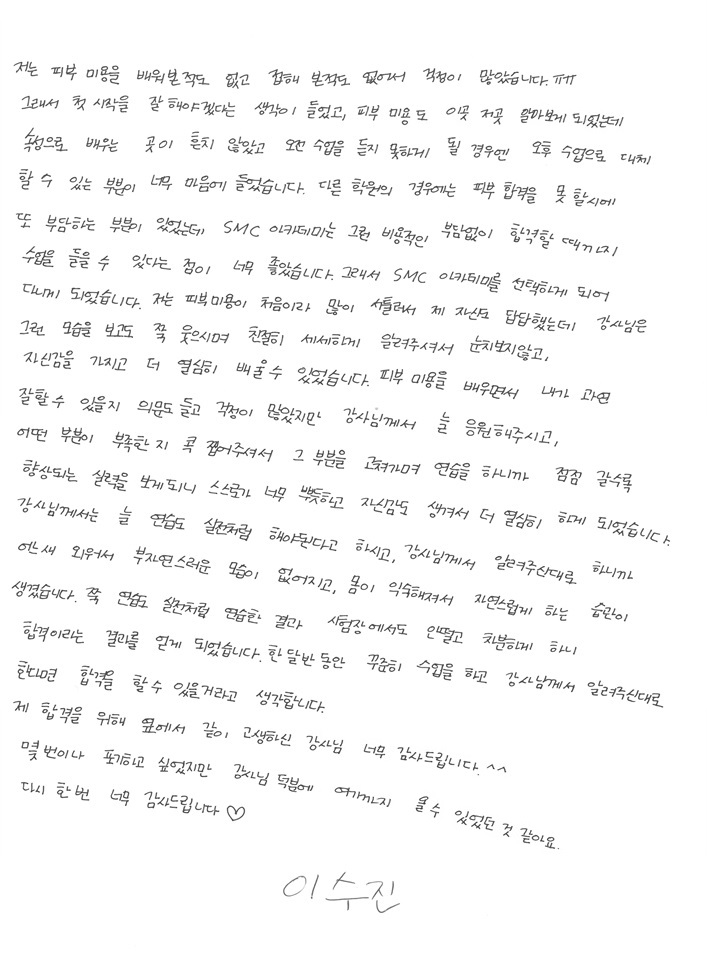 저는 피부 미용을 배워본적도 없고 접해 본적도 없어서 걱정이 많았습니다. ㅠㅠ
그래서 첫 시작을 잘 해야겠다는 생각이 들었고, 피부 미용도 이곳 저곳 알아보게 되었는데
속성으로 배우는 곳이 흔치 않았고 오전 수업을 듣지 못하게 될 경우엔 오후 수업으로 대체
할 수 있는 부분이 너무 마음에 들었습니다. 다른 학원의 경우에는 피부 합격을 못 할시에
또 부담하는 부분이 있었는데 SMC 아카데미는 그런 비용적인 부담없이 합격할 때까지
수업을 들을 수 있다는 점이 너무 좋았습니다. 그래서 SMC 아카데미를 선택하게 되어
다니게 되었습니다. 저는 피부미용이 처음이라 많이 서툴러서 제 자신도 답답했는데 강사님은
그런 모습을 보고도 쭉 웃으시며 친절히 세세하게 알려주셔서 눈치보지않고,
자신감을 가지고 더 열심히 배울수 있었습니다. 피부 미용을 배우면서 내가 과연
잘할수 있을지 의문도 들고 걱정이 많았지만 강사님께서 늘 응원해주시고,
어떤 부분이 부족한지 콕 찝어주셔서 그 부분을 고쳐가며 연습을 하니까 점점 갈수록
향상되는 실력을 보게되니 스스로가 너무 뿌듯하고 자신감도 생겨서 더 열심히 하게 되었습니다.
강사님께서는 늘 연습도 실전처럼 해야된다고 하시고, 강사님께서 알려주신대로 하니까
어느새 외워서 부자연스러운 모습이 없어지고, 몸이 익숙해져서 자연스럽게 하는 습관이
생겼습니다. 쭉 연습도 실전처럼 연습한 결과 시험장에서도 안떨고 차분하게 하니
합격이라는 결과를 얻게 되었습니다. 한 달반 동안 꾸준히 수업을 하고 강사님께서 알려주신대로
한다면 합격을 할 수 있을거라고 생각합니다.
제 합격을 위해 옆에서 같이 고생하신 강사님 너무 감사드립니다. ^^
몇 번이나 포기하고 싶었지만 강사님 덕분에 여기까지 올 수 있었던 것 같아요.
다시 한번 너무 감사드립니다 ♡
이수진